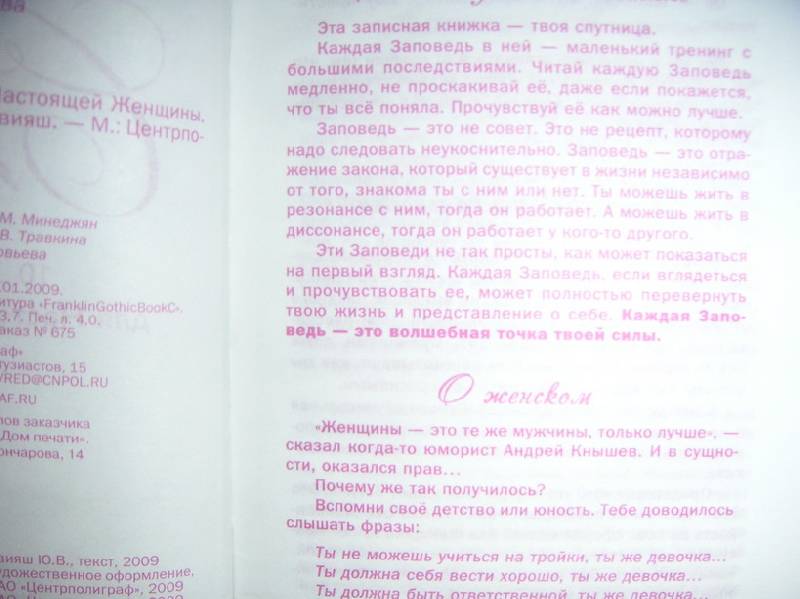 ва
Настоящей Женщины.
вияш. — М.: Центрпо-
М. Минеджян
В. Травкина
овьева
.01.2009.
итура «FranklinGothicBookC».
3,7. Печ. л. 4,0.
аказ № 675
аф»
тузиастов, 15
/RED@CNPOL.RU
AF.RU
лов заказчика
«Дом печати».
ончарова, 14
вияш Ю.В., текст, 2009
удожественное оформление,
АО «Центрполиграф», 2009
Эта записная книжка — твоя спутница.
Каждая Заповедь в ней — маленький тренинг с
большими последствиями. Читай каждую Заповедь
медленно, не проскакивай её, даже если покажется,
что ты всё поняла. Прочувствуй её как можно лучше.
Заповедь — это не совет. Это не рецепт, которому
надо следовать неукоснительно. Заповедь — это отра-
жение закона, который существует в жизни независимо
от того, знакома ты с ним или нет. Ты можешь жить в
резонансе с ним, тогда он работает. А можешь жить в
диссонансе, тогда он работает у кого-то другого.
Эти Заповеди не так просты, как может показаться
на первый взгляд. Каждая Заповедь, если вглядеться
и прочувствовать ее, может полностью перевернуть
твою жизнь и представление о себе. Каждая Запо-
ведь — это волшебная точка твоей силы.
О женском
«Женщины — это те же мужчины, только лучше», —
сказал когда-то юморист Андрей Кнышев. И в сущно-
сти, оказался прав...
Почему же так получилось?
Вспомни своё детство или юность. Тебе доводилось
слышать фразы:
Ты не можешь учиться на тройки, ты же девочка...
Ты должна себя вести хорошо, ты же девочка...
Ты должна быть ответственной, ты же девочка...